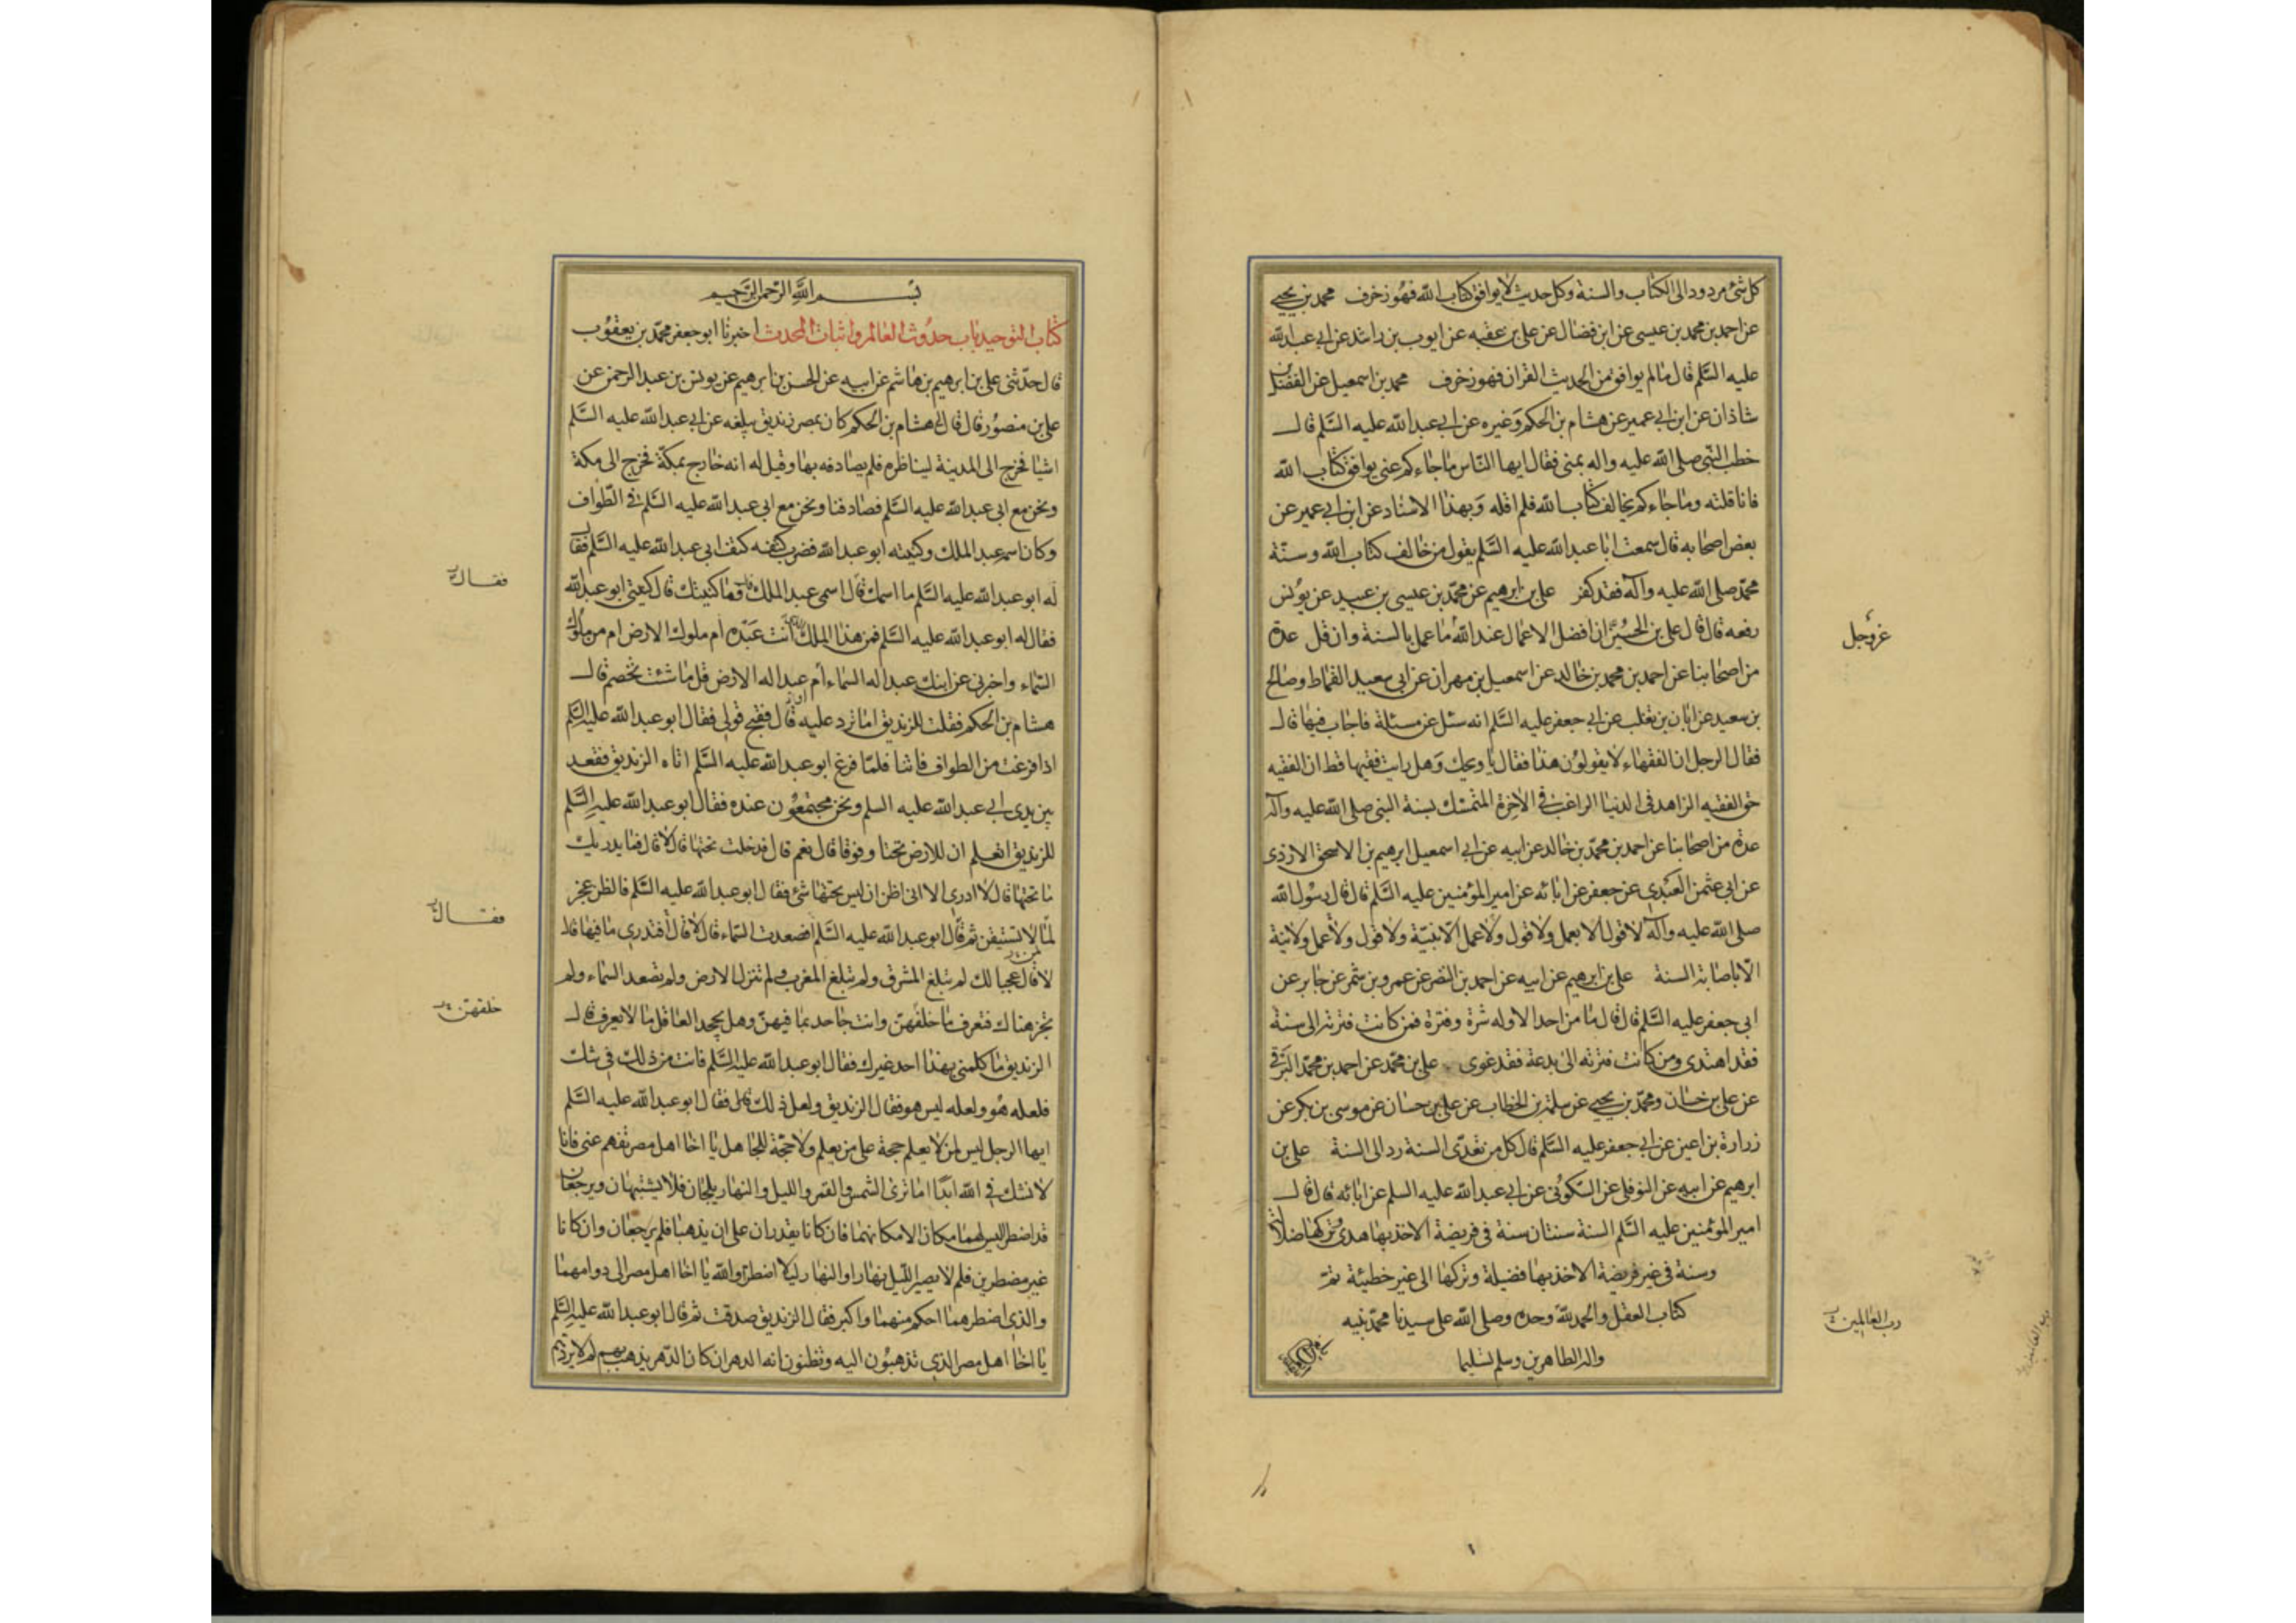 كل شئ مردود الى الكتاب والسنة وكل حديث لا يوافق كتاب الله فهو زخرف محمد بن يحيى
عن احمد بن محمد بن عيسى عن ابن فضال عن على بن عقبه عن ايوب بن راشد عن ابى عبد الله
عليه السلم قال ما لم يوافق من الحديث القران فهو زخرف محمد بن اسمعيل عن الفضل بن
شاذان عن ابن ابى عمير عن هشام بن الحكم وغيره عن ابى عبد الله عليه السلم قال
خطب النبى صلى الله عليه واله بمنى فقال ايها الناس ما جاءكم عنى يوافق كتاب الله
فانا قلته وما جاءكم يخالف كتاب الله فلم اقله وبهذا الاسناد عن ابن ابى عمير عن
بعض اصحابه قال سمعت ابا عبد الله عليه السلم يقول من خالف كتاب الله وسنة
محمد صلى الله عليه وآله فقد كفر على بن ابرهيم عن محمد بن عيسى بن عبيد عن يونس
رفعه قال قال على بن الحسين ان افضل الاعمال عند الله ما عمل بالسنة وان قل عدة
عزوجل
من اصحابنا عن احمد بن محمد بن خالد عن اسمعيل بن مهران عن ابى سعيد القماط وصالح
بن سعيد عن ابان بن تغلب عن ابى جعفر عليه السلم انه سئل عن مسئلة فاجاب فيها قال
فقال الرجل ان الفقهاء لا يقولون هذا فقال يا ويحك وهل رايت فقيها قط ان الفقيه
حق الفقيه الزاهد فى الدنيا الراغب فى الآخرة المتمسك بسنة النبى صلى الله عليه وآله
عدة من اصحابنا عن احمد بن محمد بن خالد عن ابيه عن ابى اسمعيل ابرهيم بن الاسحق الازدى
عن ابى عثمن العبدى عن جعفر عن ابائه عن امير المؤمنين عليه السلم قال قال رسول الله
صلى الله عليه وآله لا قول الا بعمل ولا قول ولا عمل الا بنية ولا قول ولا عمل ولا نية
الا باصابة السنة على بن ابرهيم عن ابيه عن احمد بن النضر عن عمرو بن شمر عن جابر عن
ابى جعفر عليه السلم قال قال ما من احد الا وله شرة وفترة فمن كانت فترته الى سنة
فقد اهتدى ومن كانت فترته الى بدعة فقد غوى على بن محمد عن احمد بن محمد البرقى
عن على بن حسان ومحمد بن يحيى عن سلمة بن الخطاب عن على بن حسان عن موسى بن بكر عن
زرارة بن اعين عن ابى جعفر عليه السلم قال كل من تعدى السنة رد الى السنة على بن
ابرهيم عن ابيه عن النوفلى عن السكونى عن ابى عبد الله عليه السلم عن ابائه قال قال
امير المؤمنين عليه السلم السنة سنتان سنة فى فريضة الاخذ بها هدى وتركها ضلالة
وسنة فى غير فريضة الاخذ بها فضيلة وتركها الى غير خطيئة تم
كتاب العقل والحمد لله وحده وصلى الله على سيدنا محمد نبيه
رب العالمين
واله الطاهرين وسلم تسليما
بسم الله الرحمن الرحيم
كتاب التوحيد باب حدوث العالم واثبات المحدث اخبرنا ابو جعفر محمد بن يعقوب
قال حدثنى على بن ابرهيم بن هاشم عن ابيه عن الحسن بن ابرهيم عن يونس بن عبد الرحمن عن
على بن منصور قال قال لى هشام بن الحكم كان بمصر زنديق يبلغه عن ابى عبد الله عليه السلم
اشيا فخرج الى المدينة ليناظره فلم يصادفه بها وقيل له انه خارج بمكة فخرج الى مكة
ونحن مع ابى عبد الله عليه السلم فصادفنا ونحن مع ابى عبد الله عليه السلم فى الطواف
وكان اسمه عبد الملك وكنيته ابو عبد الله فضرب كتفه كتف ابى عبد الله عليه السلم فقال
فقال
له ابو عبد الله عليه السلم ما اسمك قال اسمى عبد الملك قال وما كنيتك قال كنيتى ابو عبد الله
فقال له ابو عبد الله عليه السلم فمن هذا الملك الذى انت عبده ام ملوك الارض ام من ملوك
السماء واخبرنى عن ابنك عبد اله السماء أم عبد اله الارض قل ما شئت تخصم قال
هشام بن الحكم فقلت للزنديق اما ترد عليه قال فقبح قولى فقال ابو عبد الله عليه السلم
اذا فرغت من الطواف فاتنا فلما فرغ ابو عبد الله عليه السلم اتاه الزنديق فقعد
بين يدى ابى عبد الله عليه السلم ونحن مجتمعون عنده فقال ابو عبد الله عليه السلم
للزنديق اتعلم ان للارض تحتا وفوقا قال نعم قال فدخلت تحتها قال لا قال فما يدريك
ما تحتها قال لا ادرى الا انى اظن ان ليس تحتها شئ فقال ابو عبد الله عليه السلم فالظن عجز
فقال
لما لا تستيقن ثم قال ابو عبد الله عليه السلم افصعدت السماء قال لا قال أفتدرى ما فيها قال
لا قال عجبا لك لم تبلغ المشرق ولم تبلغ المغرب ولم تنزل الارض ولم تصعد السماء ولم
تجز هناك فتعرف ما خلفهن وانت جاحد بما فيهن وهل يجحد العاقل ما لا يعرف قال
خلقهن
الزنديق ما كلمنى بهذا احد غيرك فقال ابو عبد الله عليه السلم فانت من ذلك فى شك
فلعله هو ولعله ليس هو فقال الزنديق ولعل ذلك فقال ابو عبد الله عليه السلم
ايها الرجل ليس لمن لا يعلم حجة على من يعلم ولا حجة للجاهل يا اخا اهل مصر تفهم عنى فانا
لا نشك فى الله ابدا اما ترى الشمس والقمر والليل والنهار يلجان فلا يشتبهان ويرجعان
قد اضطرا ليس لهما مكان الا مكانهما فان كانا يقدران على ان يذهبا فلم يرجعان وان كانا
غير مضطرين فلم لا يصير الليل نهارا والنهار ليلا اضطرا والله يا اخا اهل مصر الى دوامهما
والذى اضطرهما احكم منهما واكبر فقال الزنديق صدقت ثم قال ابو عبد الله عليه السلم
يا اخا اهل مصر الذى تذهبون اليه وتظنون انه الدهر ان كان الدهر يذهب بهم لم لا يردهم